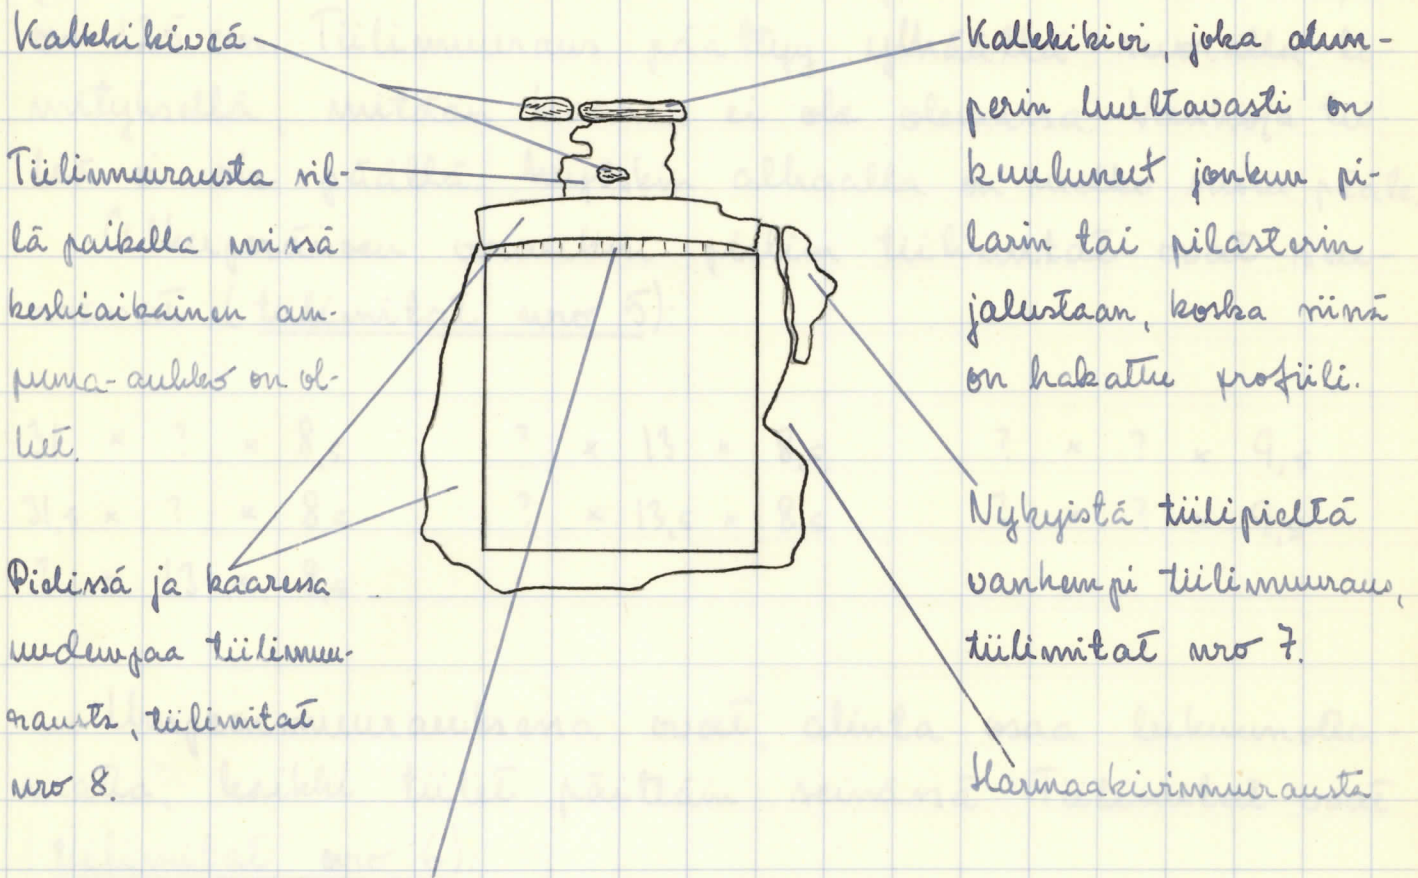 Kalkkikiveä
Tiilimuurausta sil-
lä paikalla missä
keskiaikainen am-
puma-aukko on ol-
lut.
Pielissä ja kaaressa
uudempaa tiilimuu-
rausta, tiilimitat
nro 8.
Kalkkikivi, joka alun-
perin luultavasti on
kuulunut jonkun pi-
larin tai pilasterin
jalustaan, koska siinä
on hakattu profiili.
Nykyistä tiilipieltä
vanhempi tiilimuuraus,
tiilimitat nro 7.
Harmaakivimuurausta